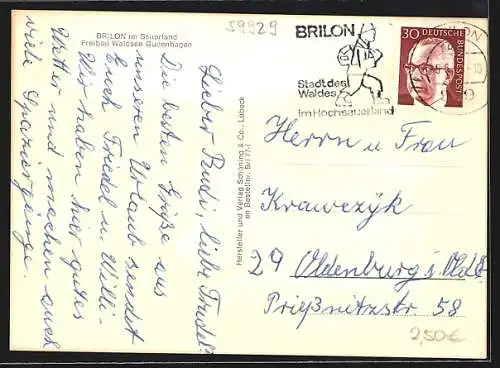 BRILON im Sauerland
Freibad Waldsee Gudenhagen
59929
Lieber Rudi, liebe Trudel!
Die besten Grüße aus
unserem Urlaub sendet
Euch Friedel u. Willi.
Wir haben hier gutes
Wetter und machen auch
viele Spaziergänge.
Hersteller und Verlag Schöning & Co., Lübeck
BRILON
Stadt des
Waldes
im Hochsauerland
30
DEUTSCHE BUNDESPOST
Herrn u Frau
Krawczyk
29 Oldenburg i. Oldb
Prießnitzstr 58
2,50€